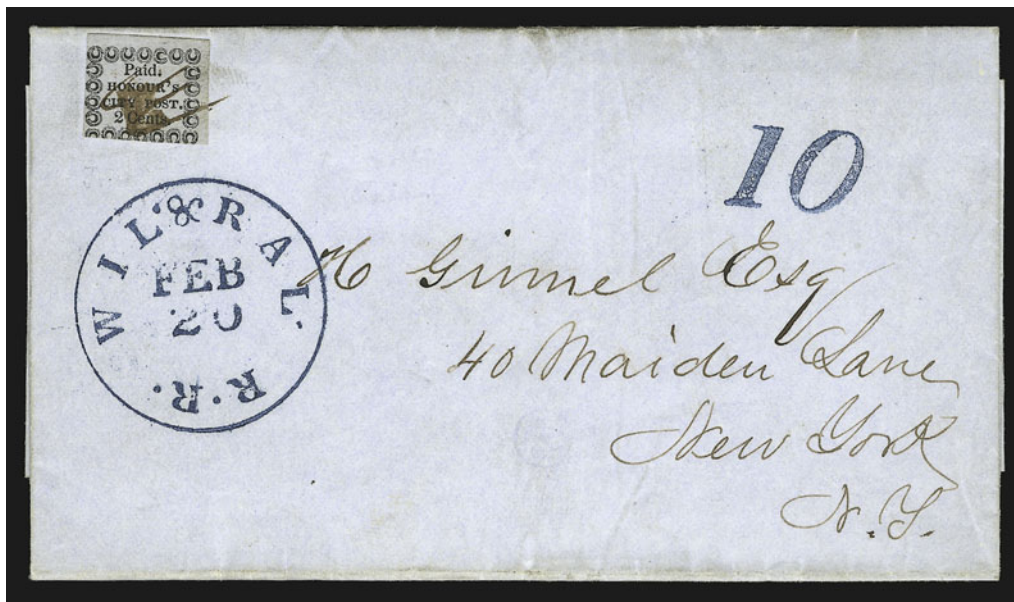 Paid.
HONOUR'S
CITY POST.
2 Cents.
10
WIL. & RAL. R.R.
FEB
20
H Gimmel Esq
40 Maiden Lane
New York
N.Y.